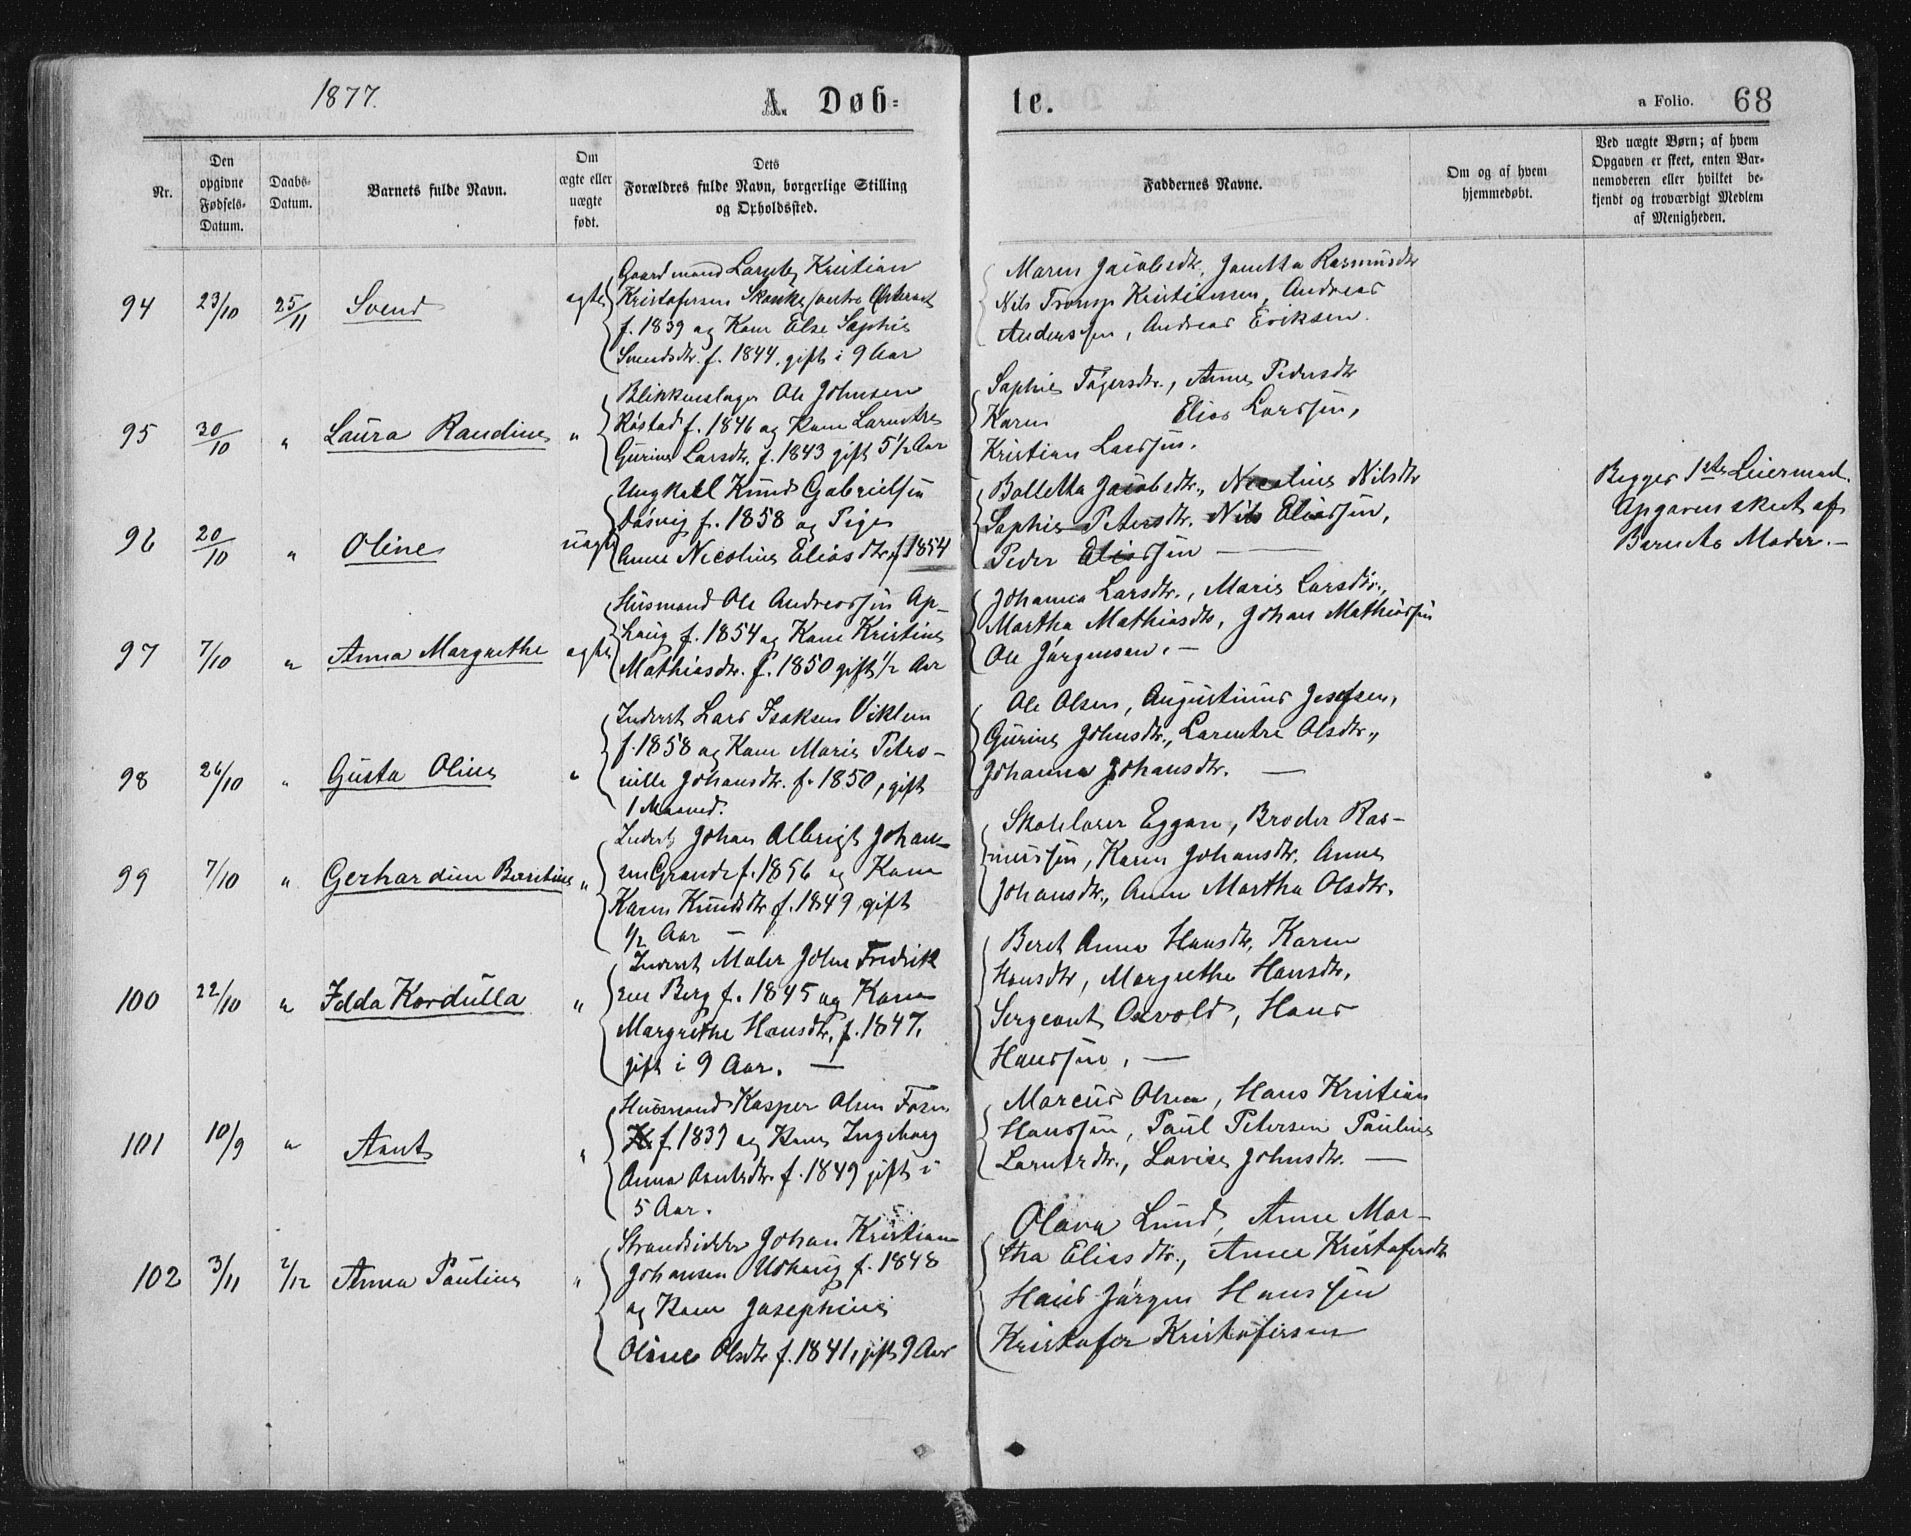 1877.
A. Døb=
te.
a Folio. 68
Nr.
Den opgivne Fødsels-Datum.
Daabs-Datum.
Barnets fulde Navn.
Om ægte eller uægte født.
Dets Forældres fulde Navn, borgerlige Stilling og Opholdssted.
Faddernes Navne.
Om og af hvem hjemmedøbt.
Ved uægte Børn; af hvem Opgaven er skeet, enten Barnemoderen eller hvilket bekjendt og troværdigt Medlem af Menigheden.
94 23/10 25/11 Svend ægte
Gaardmand Kristian
Kristofersen
f. 1839 og Kone Else Sophie
Svendsdtr. f. 1844, gift i 9 Aar
Maren Jacobsdtr, Janetta Rasmusdtr
Nils Tronsp Kristiansen, Andreas
Anderssen, Andreas Eriksen.
95 30/10 " Laura Randine "
Blikkenslager Ole Johnsen
Røstad f. 1846 og Kone Larentze
Gurine Larsdtr. f. 1843 gift 5 1/2 Aar
Sophie Tøgersdtr., Anne Pedersdtr
Karen Elias Larssen,
Kristian Larssen.
96 20/10 " Oline uægte
Ungkarl Knud Gabrielsen
f. 1858 og Pige
Anne Nicoline Eliasdtr f 1854
Balletta Jacobsdtr., Nicoline Nilsdtr
Sophie Petersdtr. Nils Eliassen,
Peder Eliassen —
Begges 1ste Leiermaal.
Opgaven skeet af
Barnets Moder. —
97 7/10 " Anna Margrethe ægte
Husmand Ole Andreassen Op-
haug f. 1854 og Kone Kristine
Mathiasdtr. f. 1850 gift 1/2 Aar
Johanna Larsdtr., Marie Larsdtr.,
Martha Mathiasdtr, Johan Mathiassen
Ole Jørgensen. —
98 26/10 " Gusta Oline "
Inderst Lars Isaksen Viklem
f. 1858 og Kone Marie Petro-
nille Johansdtr. f. 1850, gift
1 Maaned.
Ole Olsen, Augustinus Josefsen,
Gurine Johnsdtr., Larentze Olsdtr.,
Johanna Johansdtr. —
99 7/10 " Gerhardine Berntine "
Inderst Johan Albrigt Johan-
sen Grande f. 1856 og Kone
Karen Knudsdtr f. 1849, gift
1/2 Aar —
Skolelærer Eggan, Broder Ras-
mussen, Karen Johansdtr. Anne
Johansdtr., Anne Martha Olsdtr.
100 22/10 " Idda Kordulla "
Inderst Maler John Fredrik
sen Berg f. 1845 og Kone
Margrethe Hansdtr, f. 1847,
gift i 9 Aar. —
Beret Anna Hansdtr, Karen
Hansdtr, Margrethe Hansdtr,
Sergeant Oxvold, Hans
Hanssen. —
101 10/9 " Arnt "
Husmand Kasper Olsen
f 1839 og Kone Ingeborg
Anna Arntsdtr f. 1849 gift i
5 Aar.
Marcus Olsen, Hans Kristian
Hanssen, Paul Petersen Pauline
Larntsdtr., Lovise Johnsdtr. —
102 3/11 2/12 Anna Pauline "
Strandsidder Johan Kristian
Johansen Udhaug f. 1848
og Kone Josephine
Oline Olsdtr f. 1841, gift 9 Aar
Olava Lund, Anne Mar-
tha Eliasdtr., Anne Kristofersdtr
Hans Jørgen Hanssen
Kristofer Kristofersen